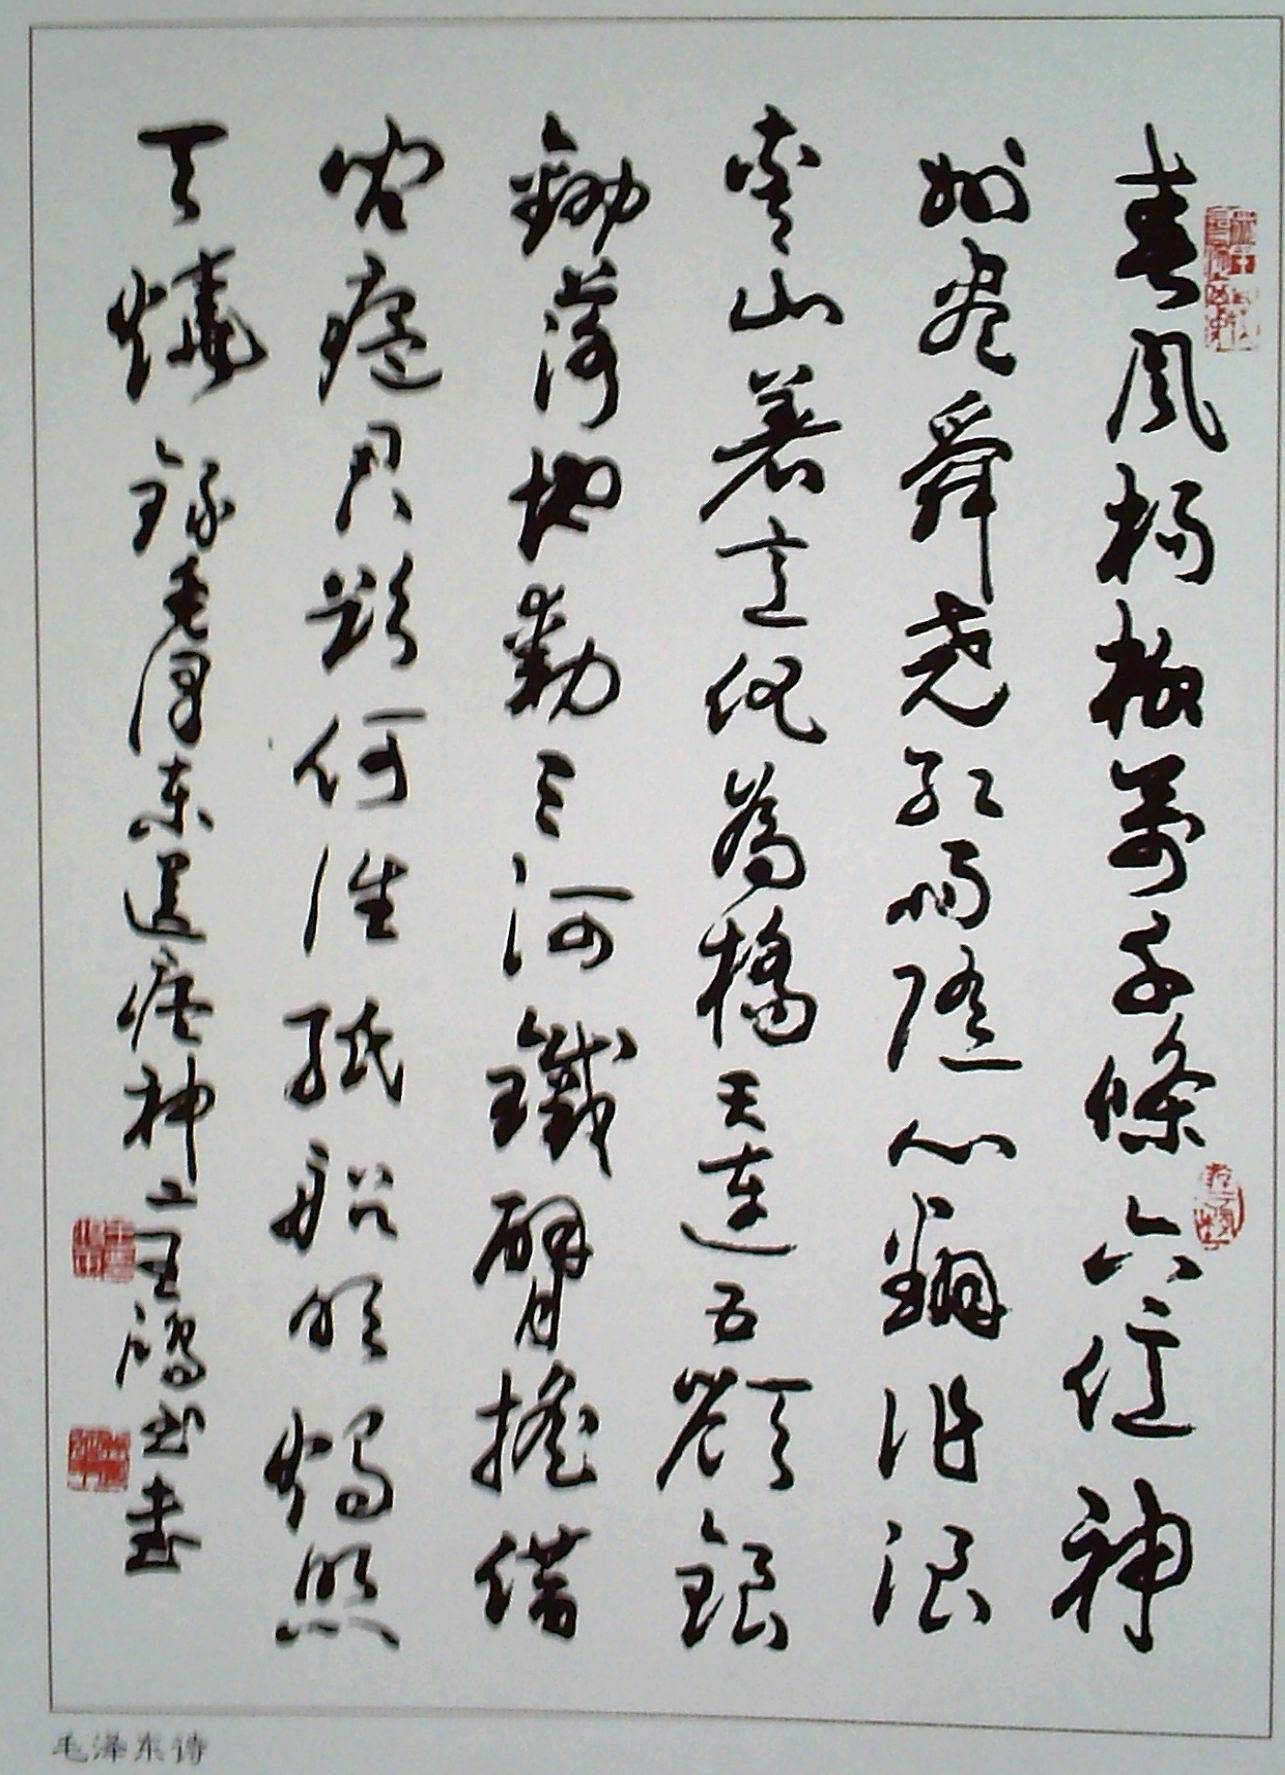 春風楊柳萬千條六億神
州尽舜堯紅雨隨心翻作浪
青山著意化為橋天連五嶺銀
鋤落地動三河鐵臂搖借
問瘟君欲何往紙船明燭照
天燒 錄毛澤東送瘟神二 書
毛泽东诗